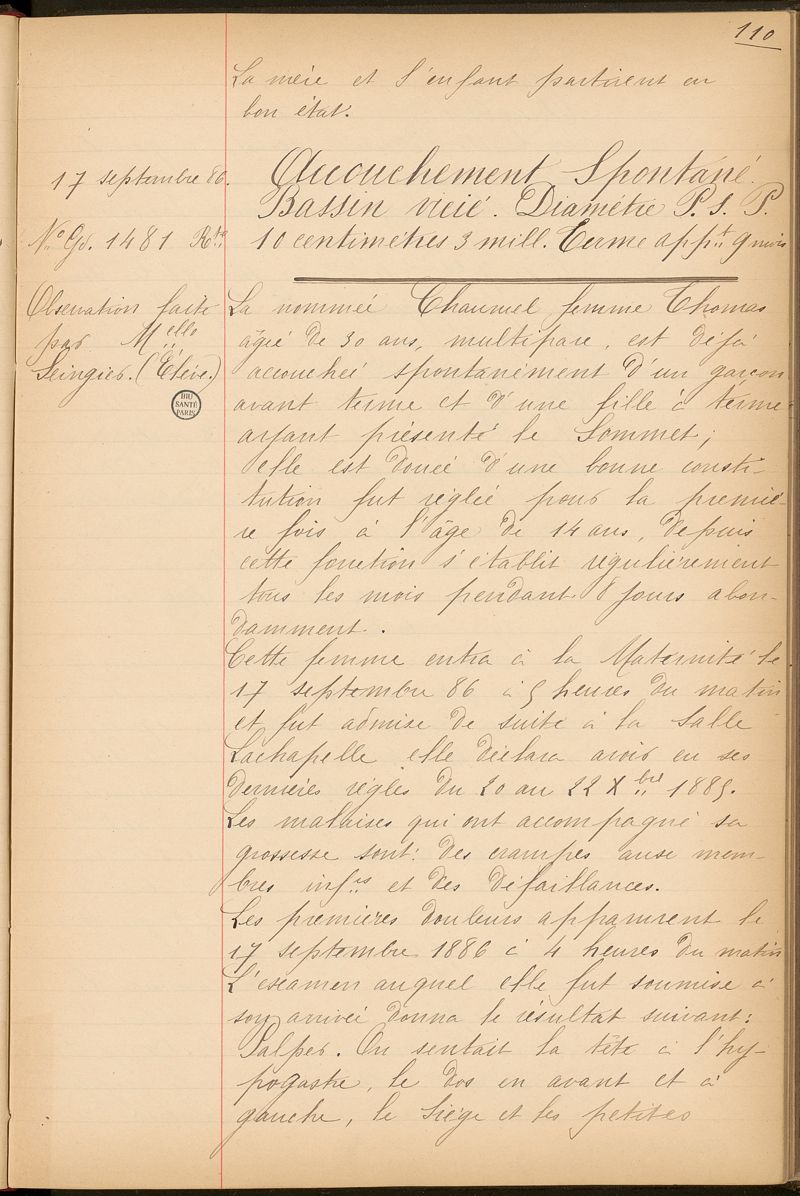 110
La mère et l'enfant partirent en
bon état.
17 septembre 86.
Accouchement Spontané.
Bassin vicié. Diamètre P. S. P.
Nº Gd. 1481 Rtre
10 centimètres 3 mill. Terme appt 9 mois
Observation faite
par Melle
Seingier. (Élève.)
BIU
SANTÉ
PARIS
La nommée Chaumel femme Thomas
âgée de 30 ans, multipare, est déjà
accouchée spontanément d'un garçon
avant terme et d'une fille à terme
ayant présenté le Sommet;
elle est douée d'une bonne consti-
tution fut réglée pour la premiè-
re fois à l'âge de 14 ans, depuis
cette fonction s'établit régulièrement
tous les mois pendant 8 jours abon-
damment.
Cette femme entra à la Maternité le
17 septembre 86 à 5 heures du matin
et fut admise de suite à la Salle
Lachapelle elle déclara avoir eu ses
dernières règles du 20 au 22 Xbre 1885.
Les malaises qui ont accompagné sa
grossesse sont: des crampes aux mem-
bres infres et des défaillances.
Les premières douleurs apparurent le
17 septembre 1886 à 4 heures du matin
L'examen auquel elle fut soumise à
son arrivée donna le résultat suivant:
Palper. On sentait la tête à l'hy-
pogastre, le dos en avant et à
gauche, le Siège et les petites